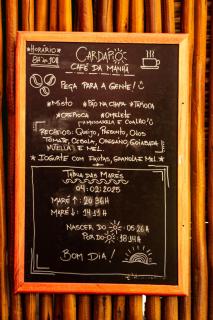 *HORÁRIO*
8H às 10H
CARDÁPIO
CAFÉ DA MANHÃ
PEÇA PARA A GENTE! :)
*MISTO *PÃO NA CHAPA *TAPIOCA
*CREPIOCA *OMELETE
(MUSSARELA E COALHO)
RECHEIOS: QUEIJO, PRESUNTO, OVOS
TOMATE, CEBOLA, ORÉGANO, GOIABADA
NUTELLA E MEL.
* IOGURTE COM FRUTAS, GRANOLA E MEL *
TÁBUA DAS MARÉS
04/02/2025
MARÉ ↑: 20:36H
MARÉ ↓: 14:19H
NASCER DO: 05:26H
PÔR DO: 18:14H
BOM DIA!